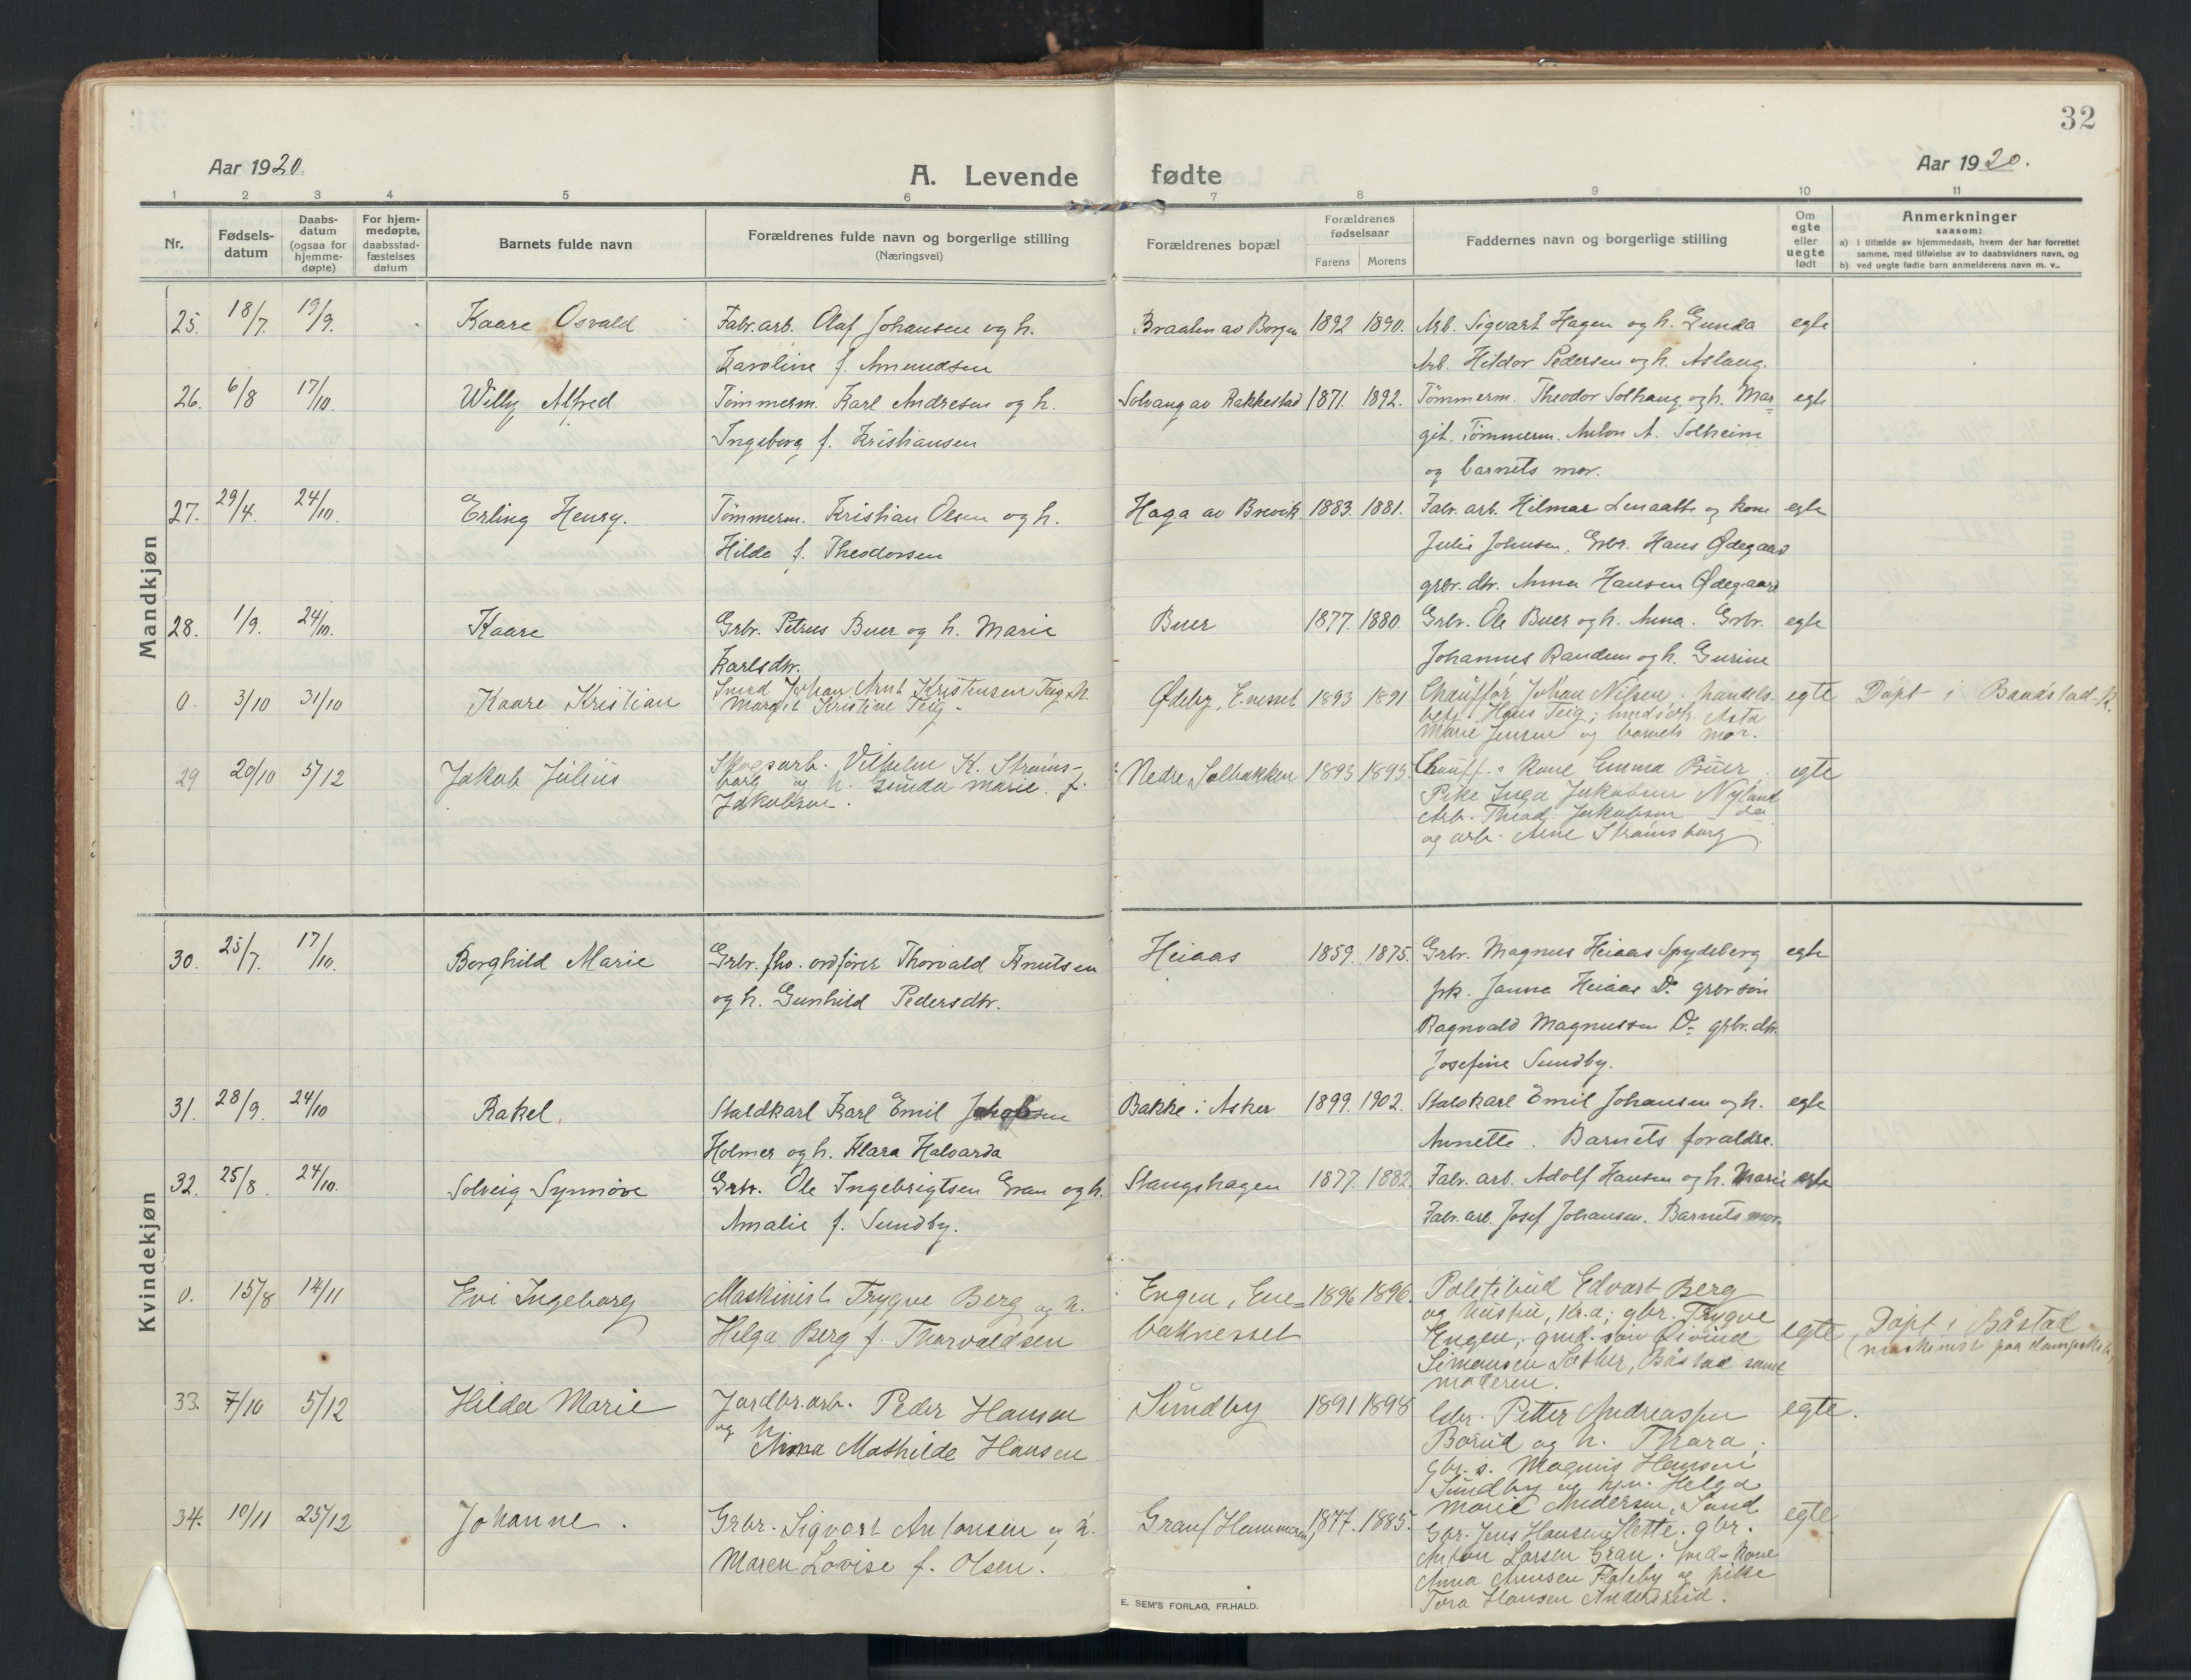 32
Aar 1920.
A. Levende fødte
Aar 1920.
1 2 3 4 5 6 7 8 9 10 11
Nr.
Fødsels-
datum
Daabs-
datum
(ogsaa for
hjemme-
døpte)
For hjem-
medøpte,
daabsstad-
fæstelses
datum
Barnets fulde navn
Forældrenes fulde navn og borgerlige stilling
(Næringsvei)
Forældrenes bopæl
Forældrenes
fødselsaar
Farens Morens
Faddernes navn og borgerlige stilling
Om
egte
eller
uegte
født
Anmerkninger
saasom:
a) i tilfælde av hjemmedaab, hvem der har forrettet
samme, med tilføielse av to daabsvidners navn, og
b) ved uegte fødte barn anmelderens navn m. v..
Mandkjøn
25. 18/7. 19/9. Kaare Osvald Fabr. arb. Olaf Johansen og h. Braaten av Borgen 1892 1890. Arb. Sigvart Hagen og h. Gunda egte
Karoline f. Amundsen Arb. Hildor Pedersen og h. Aslaug.
26. 6/8 17/10. Willy Alfred Tømmerm. Karl Andresen og h. Solvang av Rakkestad 1871. 1892. Tømmerm. Theodor Solhaug og h. Mar- egte
Ingeborg f. Kristiansen git. Tømmerm. Anton A. Solheim
og barnets mor.
27. 29/4. 24/10. Erling Henry. Tømmerm. Kristian Olsen og h. Haga av Brevik. 1883. 1881. Fabr. arb. Hilmar og kone egte
Hilda f. Theodorsen Julie Johnsen. Grbr. Hans Ødegaard
grbr. dtr. Anna Hansen Ødegaard
28. 1/9. 24/10. Kaare Grbr. Petrus Buer og h. Marie Buer 1877. 1880. Grbr. Ole Buer og h. Anna. Grbr. egte
Karlsdtr. Johannes Randem og h. Gurine
0. 3/10 31/10 Kaare Kristian Smed Johan Arnt Kristensen Teig h. Ødeby, E.nesset 1893 1891 Chauffør Johan Nilsen. handels- egte Døpt i Baadstad k.
Margit Kristine Teig. betj. Hans Teig; Asta
Marie Jensen og barnets mor.
29 20/10 5/12 Jakob Julius Skogsarb. Vilhelm K. Strøms- Nedre Solbakken 1893 1895. Chauff. kone Emma Buer egte
borg og h. Gunda Marie f. Pike Inga Jakobsen Nyland
Jakobsen. Arb. Thead. Jakobsen do
og arb. Arne Strømsborg
Kvindekjøn
30. 25/7. 17/10. Borghild Marie Grbr. fhv. ordfører Thorvald Knutsen Heiaas 1859. 1875. Grbr. Magnus Heiaas Spydeberg egte
og h. Gunhild Pedersdtr. frk. Janna Heiaas Do grbr søn
Ragnvald Magnussen Do grbr. dtr.
Josefine Sundby.
31. 28/9. 24/10 Rakel. Staldkarl Karl Emil Bakke i Asker 1899. 1902. Staldkarl Emil Johansen og h. egte
Holmer og h. Klara Halvarda Annette. Barnets foraldre.
32. 25/8. 24/10. Solveig Synnøve Grbr. Ole Ingebrigtsen Gran og h. Stangshagen 1877. 1882 Fabr. arb. Adolf Hansen og h. Marie egte
Amalie f. Sundby. Fabr. arb. Josef Johansen. Barnets mor.
0. 15/8 14/11 Evi Ingeborg Maskinist Trygve Berg og h. Engen, Ene- 1896 1896. Politibud Edvart Berg
Helga Berg f. Thorvaldsen baknesset og hustru, Kr.a; gbr. Trygve
Engen; gmd. søn Øivind egte, Døpt i Båstad.
Simensen Sæther, Båstad samt (maskinist paa
moderen.
33. 7/10 5/12 Hilda Marie Jordbr.arb. Peder Hansen Sundby 1891 1898 Gbr. Petter Andreassen egte.
og h. Anna Mathilde Hansen Borud og h. Thora;
gbr. s. Magnus Hansen
Sundby og Helga
Marie Andersen, Sand
34. 10/11 25/12 Johanne. Grbr. Sigvart Antonsen og h. Gran (Hammeren) 1877. 1885. Gbr. Jens Hansen Slette. gbr. egte
Maren Lovise f. Olsen. Anton Larsen Gran. Smd-kone
Anna Arnesen Flateby og pike
Tora Hansen Andersrud.
E. SEM'S FORLAG, FR.HALD.